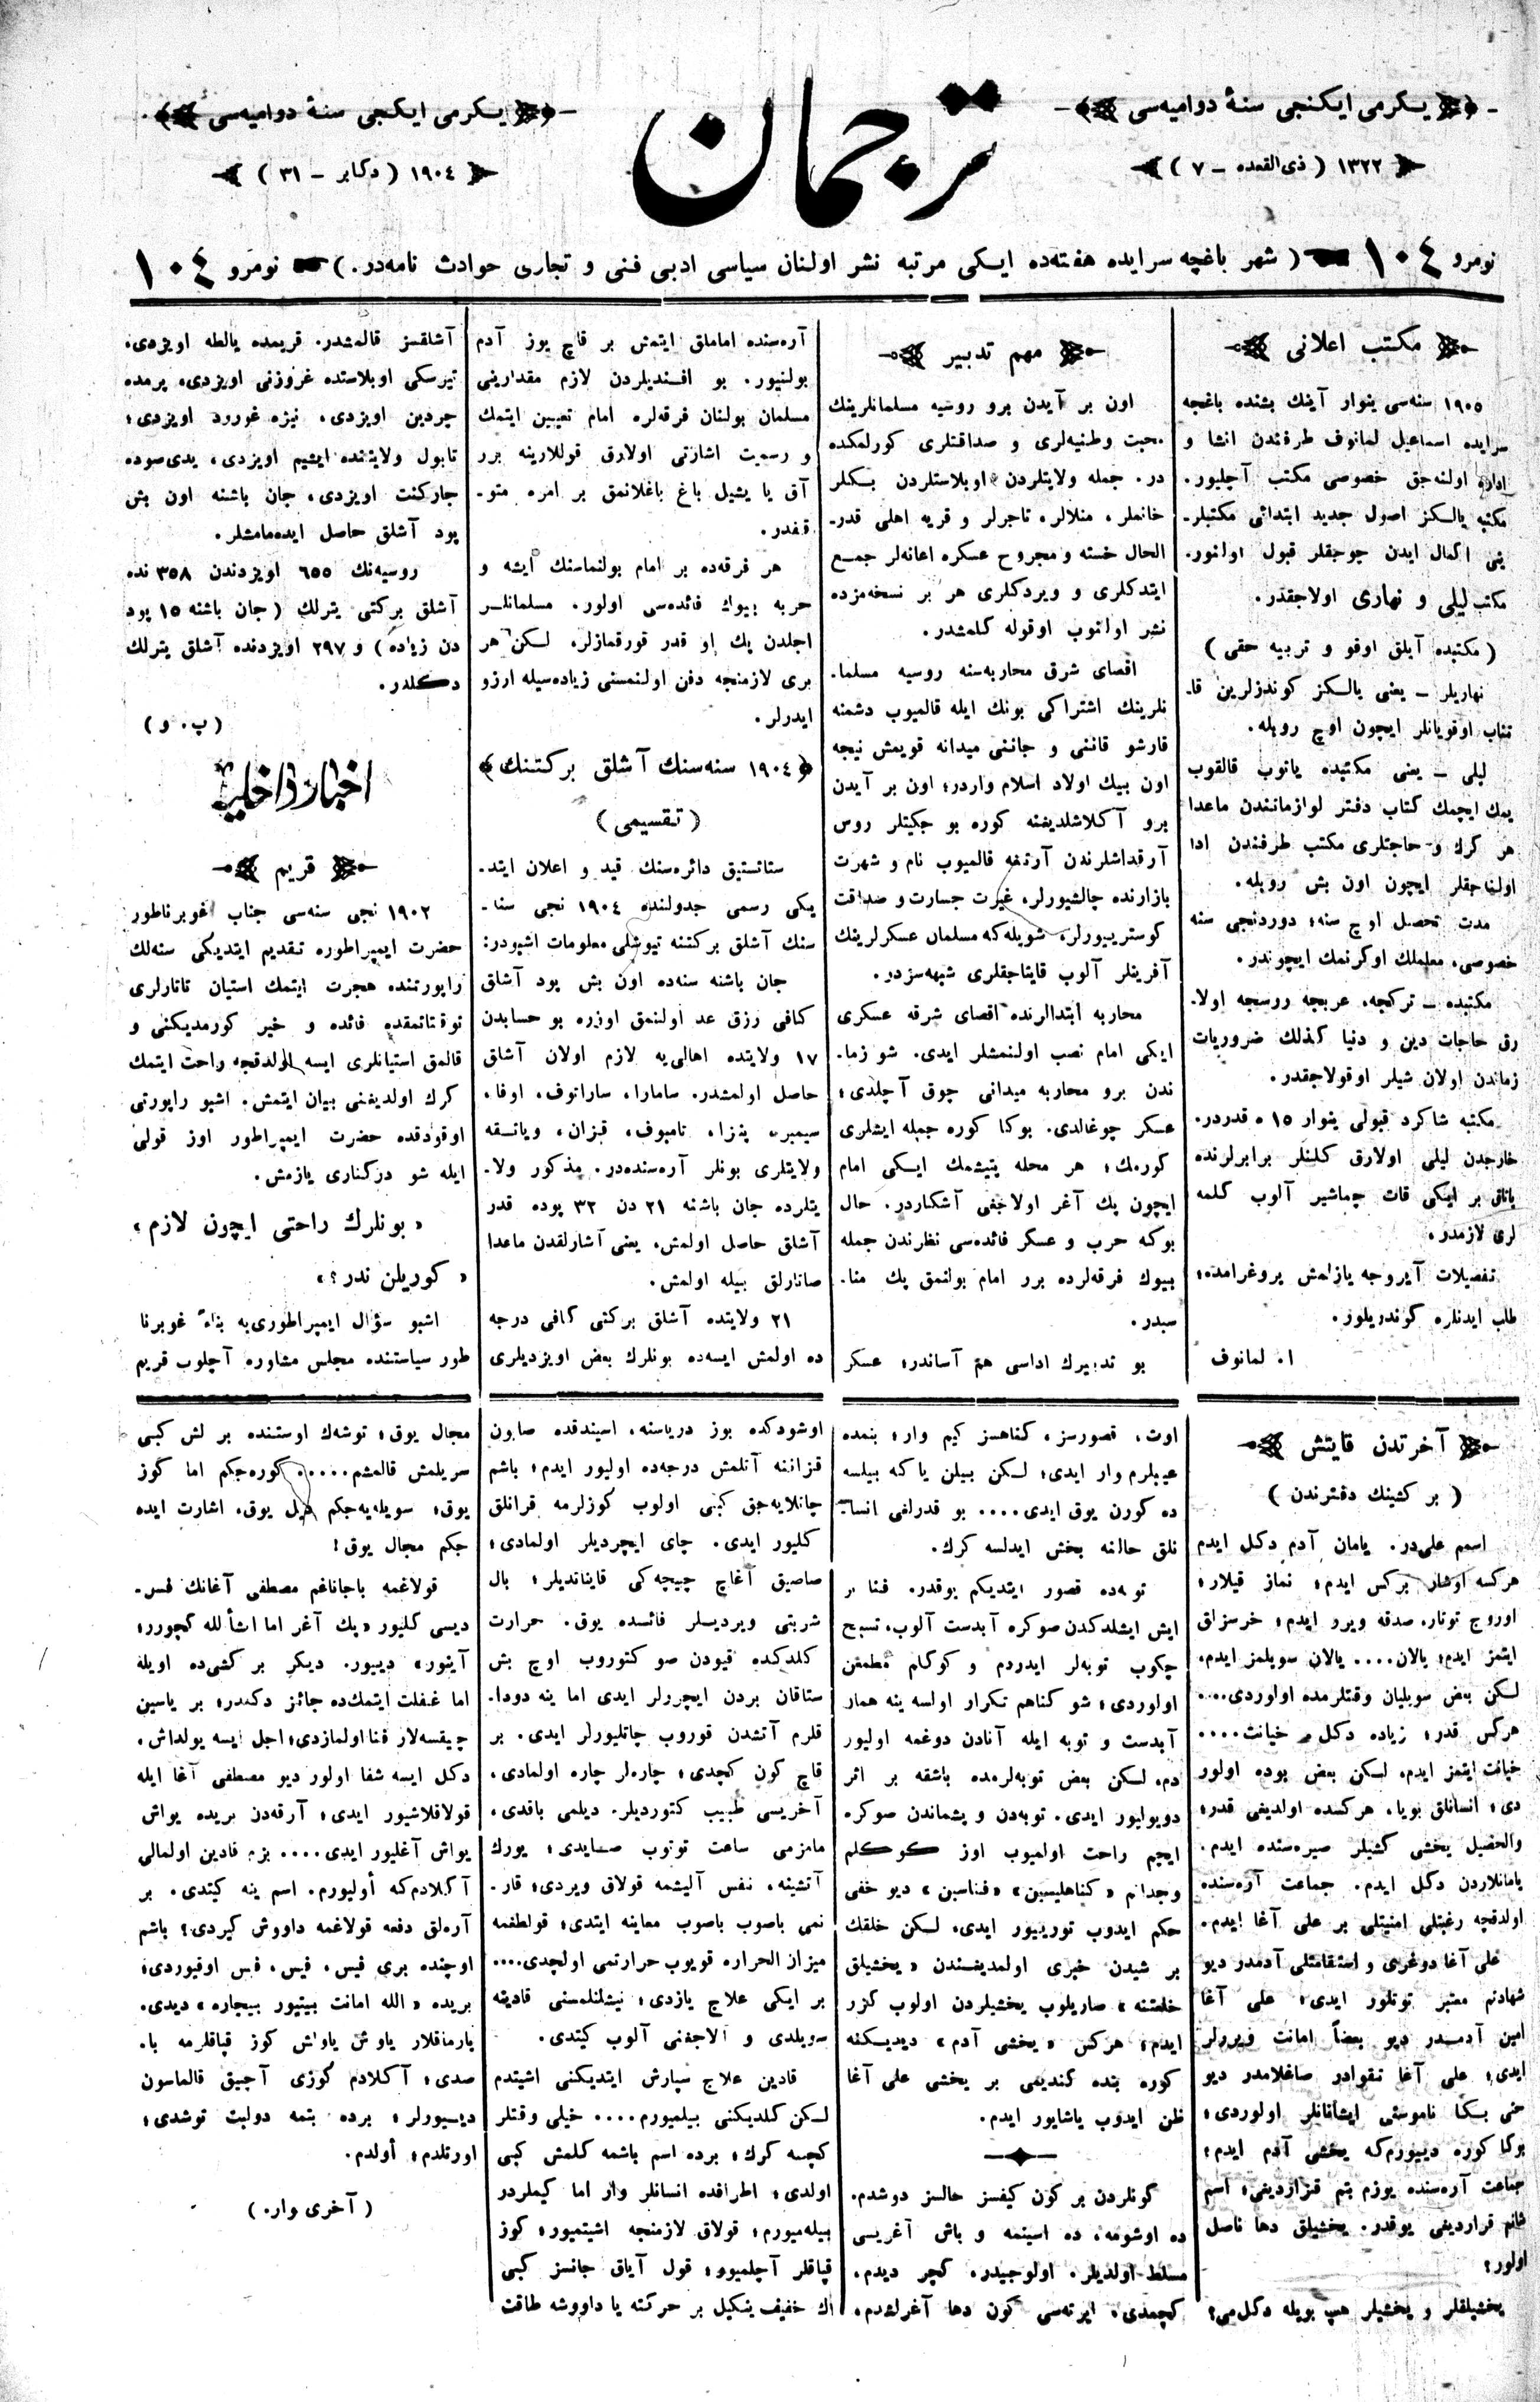 یکرمی ایکنجی سنۀ دوامیه‌سی
١٣٢٢ ( ذی القعده ــ ٧ )
ترجمان
یکرمی ایکنجی سنۀ دوامیه‌سی
١٩٠٤ ( دکابر ــ ٣١ )
نومرو ١٠٤ ( شهر باغچه سرایده هفته‌ده ایکی مرتبه نشر اولنان سیاسی ادبی فنی و تجاری حوادث نامه‌در. ) نومرو ١٠٤
مکتب اعلانی
١٩٠٥ سنه‌سی ینوار آینك بشنده باغچه
سرایده اسماعیل لمانوف طرفندن انشا و
اداره اولنه‌جق خصوصی مکتب آچلیور.
مکتبه یالکز اصول جدید ابتدائی مکتبلر۔
ینی اکمال ایدن چوجقلر قبول اولنور.
مکتب لیلی و نهاری اولاجقدر.
( مکتبده آیلق اوقو و تربیه حقی )
نهاریلر ــ یعنی یالکز کوندزلرین قا۔
تناب اوقویانلر ایچون اوچ روبله.
لیلی ــ یعنی مکتبده یاتوب قالقوب
یمك ایچمك کتاب دفتر لوازماتندن ماعدا
هر کرك و حاجتلری مکتب طرفندن ادا
اولناجقلر ایچون اون بش روبله.
مدت تحصل اوچ سنه؛ دوردنجی سنه
خصوصی، معلملك اوکرنمك ایچوندر.
مکتبده ــ ترکچه، عربجه روسجه اولا۔
رق حاجات دین و دنیا کذلك ضروریات
زماندن اولان شیلر اوقولاجقدر.
مکتبه شاکرد قبولی ینوار ١٥ ه قدردر.
خارجدن لیلی اولارق کلنلر برابرلرنده
یاتاق بر ایکی قات چماشیر آلوب کلمه
لری لازمدر.
تفصیلات آیروجه یازلمش پروغرامده؛
طلب ایدنلره کوندریلور.
ا. لمانوف
مهم تدبیر
اون بر آیدن برو روسیه مسلمانلرینك
محبت وطنیه‌لری و صداقتلری کورلمکده
در. جمله ولایتلردن اوبلاستلردن بکلر
خانملر، منلالر، تاجرلر و قریه اهلی قدر۔
الحال خسته و مجروح عسکره اعانه‌لر جمع
ایتدکلری و ویردکلری هر بر نسخه‌مزده
نشر اولنوب اوقوله کلمشدر.
اقصای شرق محاربه‌سنه روسیه مسلما۔
نلرینك اشتراکی بونك ایله قالمیوب دشمنه
قارشو قاننی و جاننی میدانه قویمش نیجه
اون بیك اولاد اسلام واردر؛ اون بر آیدن
برو آکلاشلدیغنه کوره بو جکیتلر روس
آرقداشلرندن آرتغه قالمیوب نام و شهرت
بازارنده چالشیورلر، غیرت جسارت و صداقت
کوستریبورلر، شویله‌که مسلمان عسکرلرینك
آفرینلر آلوب قایتاجقلری شبهه‌سزدر.
محاربه ابتدالرنده اقصای شرقه عسکری
ایکی امام نصب اولنمشلر ایدی. شو زما۔
ندن برو محاربه میدانی چوق آچلدی؛
عسکر چوغالدی. بوکا کوره جمله ایشلری
کورمك؛ هر محله یتیشمك ایکی امام
ایچون پك آغر اولاجغی آشکاردر. حال
بوکه حرب و عسکر فائده‌سی نظرندن جمله
بیوك فرقه‌لرده برر امام بولنمق پك منا۔
سبدر.
بو تدبیرك اداسی هم آساندر؛ عسکر
آره‌سنده اماملق ایتمش بر قاچ یوز آدم
بولنیور. بو افندیلردن لازم مقدارینی
مسلمان بولنان فرقه‌لره امام تعیین ایتمك
و رسمیت اشارتی اولارق قوللارینه برر
آق یا یشیل باغ باغلانمق بر امره متو۔
قفدر.
هر فرقه‌ده بر امام بولنماسنك ایشه و
حربه بیوك فائده‌سی اولور. مسلمانلر
اجلدن پك او قدر قورقمازلر. لکن هر
بری لازمنجه دفن اولنمسنی زیاده‌سیله ارزو
ایدرلر.
﴿ ١٩٠٤ سنه‌سنك آشلق برکتنك ﴾
( تقسیمی )
ستاتستیق دائره‌سنك قید و اعلان ایتد۔
یکی رسمی جدولنده ١٩٠٤ نجی سنا۔
سنك آشلق برکتنه تیوشلی معلومات اشبودر:
جان باشنه سنه‌ده اون بش پود آشلق
کافی رزق عد اولنمق اوزره بو حسابدن
١٧ ولایتده اهالی‌یه لازم اولان آشلق
حاصل اولمشدر. سامارا، ساراتوف، اوفا،
سیمبر، پنزا، تامبوف، قزان، ویاتسقه
ولایتلری بونلر آره‌سنده‌در. مذکور ولا۔
یتلرده جان باشنه ٢١ دن ٣٢ پوده قدر
آشلق حاصل اولمش، یعنی آشارلقدن ماعدا
صاتارلق بیله اولمش.
٢١ ولایتده آشلق برکتی کافی درجه
ده اولمش ایسه‌ده بونلرك بعض اویزدیلری
آشلقسز قالمشدر. قریمده یالطه اویزدی،
تیرسکی اوبلاستده غروزنی اویزدی، پرمده
چردین اویزدی، نیژه غورود اویزدی؛
تابول ولایتنده ایشیم اویزدی، یدی‌صوده
جارکنت اویزدی، جان باشنه اون بش
پود آشلق حاصل ایده‌مامشلر.
روسیه‌نك ٦٥٥ اویزدندن ٣٥٨ نده
آشلق برکتی یترلك ( جان باشنه ١٥ پود
دن زیاده ) و ٢٩٧ اویزدنده آشلق یترلك
دکلدر.
( پ. و )
اخبار داخلیه
قریم
١٩٠٢ نجی سنه‌سی جناب غوبرناطور
حضرت ایمپراطوره تقدیم ایتدیکی سنه‌لك
راپورتنده هجرت ایتمك استیان تاتارلری
توقتاتمقده فائده و خیر کورمدیکنی و
قالمق استیانلری ایسه اولدقجه راحت ایتمك
کرك اولدیغنی بیان ایتمش. اشبو راپورتی
اوقودقده حضرت ایمپراطور اوز قولی
ایله شو درکناری یازمش.
« بونلرك راحتی ایچون لازم »
« کوریلن ندر ؟ »
اشبو سؤال ایمپراطوری‌یه بناءً غوبرنا
طور سیاستنده مجلس مشاوره آچلوب قریم
آخرتدن قایتش
( بر کشینك دفترندن )
اسمم علی‌در. یامان آدم دکل ایدم
هرکسه اوشار برکس ایدم؛ نماز قیلار؛
اوروچ توتار، صدقه ویرر ایدم؛ خرسزلق
ایتمز ایدم؛ یالان.... یالان سویلمز ایدم،
لکن بعض سویلیان وقتلرمده اولوردی....
هرکس قدر؛ زیاده دکل، خیانت....
خیانت ایتمز ایدم، لسکن بعض بوده اولور
دی؛ انسانلق بویا، هرکسده اولدیغی قدر؛
والحصیل یخشی کشیلر صیره‌سنده ایدم.
یامانلاردن دکل ایدم. جماعت آره‌سنده
اولدقچه رغبتلی امنیتلی بر علی آغا ایدم.
علی آغا دوغری و استقامتلی آدمدر دیو
شهادتم معتبر توتلور ایدی؛ علی آغا
امین آدمدر دیو بعضاً امانت ویررلر
ایدی؛ علی آغا تقوادر صاغلامدر دیو
حتی بکا ناموسنی ایشانانلر اولوردی؛
بوکا کوره دییورم‌که یخشی آدم ایدم؛
جماعت آره‌سنده یوزم بتم قزاردیغی؛ اسم
شانم قراردیغی یوقدر. یخشیلق دها ناصل
اولور؛
یخشیلقلر و یخشیلر هپ بویله دکل‌می؟
اوت، قصورسز، کناهسز کیم وار؛ بنمده
عیبلرم وار ایدی؛ لکن بیلن یا که بیلسه
ده کورن یوق ایدی.... بو قدرلغی انسا۔
نلق حالنه بخش ایدلسه کرك.
توبه‌ده قصور ایتدیکم یوقدر. فنا بر
ایش ایشلدکدن صوکره آبدست آلوب، تسبح
چکوب توبه‌لر ایدردم و کوکلم مطمئن
اولوردی؛ شو کناهم تکرار اولسه ینه همار
آبدست و توبه ایله آنادن دوغمه اولیور
دم، لسکن بعض توبه‌لرمده باشقه بر اثر
دویولیور ایدی. توبه‌دن و پشماندن صوکره
ایچم راحت اولمیوب اوز کوکلم
وجدانم « کناهلیسین » « فناسین » دیو خفی
حکم ایدوب توریبیور ایدی، لسکن خلقك
بر شیدن خبری اولمدیغندن « یخشیلق
خلعتنه » صاریلوب یخشیلردن اولوب کزر
ایدم؛ هرکس « یخشی آدم » دیدیکنه
کوره بنده کندیمی بر یخشی علی آغا
ظن ایدوب یاشایور ایدم.
کونلردن بر کون کیفسز حالسز دوشدم.
ده اوشومه، ده اسینمه و باش آغریسی
مسلط اولدیلر. اولوجیدر، کچر دیدم.
کچمدی، ایرته‌سی کون دها آغرلشدم.
اوشودکده بوز دریاسنه، اسیندقده صابون
قزاننه آتلمش درجه‌ده اولیور ایدم؛ باشم
چاتلایه‌جق کبی اولوب کوزلرمه قرانلق
کلیور ایدی. چای ایچردیلر اولمادی؛
صاصیق آغاچ چیچه‌کی قایناتدیلر؛ بال
شربتی ویردیلر فائسده یوق. حرارت
کلدکده قیودن صو کتوروب اوچ بش
ستاقان بردن ایچررلر ایدی اما ینه دودا۔
قلرم آتشدن قوروب چاتلیورلر ایدی. بر
قاچ کون کچدی؛ چاره‌لر چاره اولمادی.
آخریسی طبیب کتوردیلر. دیلمی باقدی،
مامزمی ساعت توتوب صسایدی؛ یورك
آتشینه، نفس آلیشمه قولاق ویردی؛ قار۔
نمی باصوب باصوب معاینه ایتدی؛ قولطغمه
میزان الحراره قویوب حرارتمی اولچدی....
بر ایکی علاج یازدی؛ نیشلنلمسنی قادینه
سویلدی و آلاجغنی آلوب کیتدی.
قادین علاج سپارش ایتدیکنی اشیتدم
لسکن کلدیکنی بیلمیورم.... خیلی وقتلر
کچسه کرك؛ برده اسم باشمه کلمش کبی
اولدی؛ اطرافده انسانلر وار اما کیملردر
بیله‌میورم؛ قولاق لازمنجه اشیتمیور؛ کوز
قپاقلر آچلمیور؛ قول آیاق جانسز کبی
اك خفیف ینکیل بر حرکته یا داووشه طاقت
مجال یوق؛ توشه‌ك اوستنده بر لش کبی
سریلمش قالمشم..... کوره‌جکم اما کوز
یوق؛ سویله‌یه‌جکم دیل یوق، اشارت ایده
جکم مجال یوق!
قولاغمه باجاناغم مصطفی آغانك فس۔
دیسی کلیور « پك آغر اما انشأ لله کچورر؛
آیتور » دیبور. دیکر بر کشی‌ده اویله
اما غفلت ایتمك‌ده جائز دکلدر؛ بر یاسین
چیقسه‌لار فنا اولمازدی؛ اجل ایسه یولداش،
دکل ایسه شفا اولور دیو مصطفی آغا ایله
قولاقلاشیور ایدی؛ آرقه‌دن بریده یواش
یواش آغلیور ایدی.... بزم قادین اولمالی
آکلادم‌که أولیورم. اسم ینه کیتدی. بر
آره‌لق دفعه قولاغمه داووش کیردی؟ باشم
اوچنده بری فیس، فیس، فس اوقیوردی؛
بریده « الله امانت بیتیور بیچاره » دیدی.
پارماقلار یاوش یاواش کوز قپاقلرمه با۔
صدی؛ آکلادم کوزی آچیق قالماسون
دیسیورلر؛ برده بتمه دولبت توشدی؛
اورتلدم؛ أولدم.
( آخری وار. )